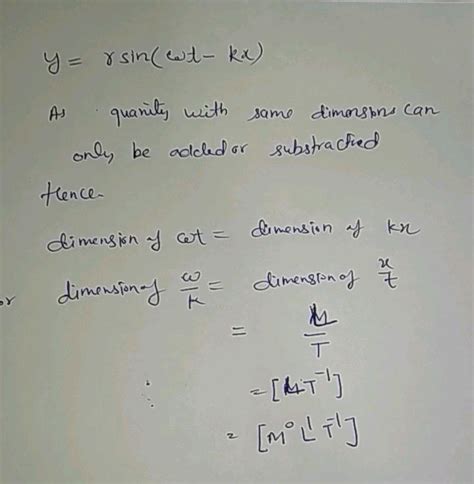 y = r sin(ωt - kx)
As quanity with same dimensions can
only be added or substracted
Hence-
dimension of ωt = dimension of kx
or dimension of ω/k = dimension of x/t
= L/T
∴ = [LT⁻¹]
= [M⁰L¹T⁻¹]